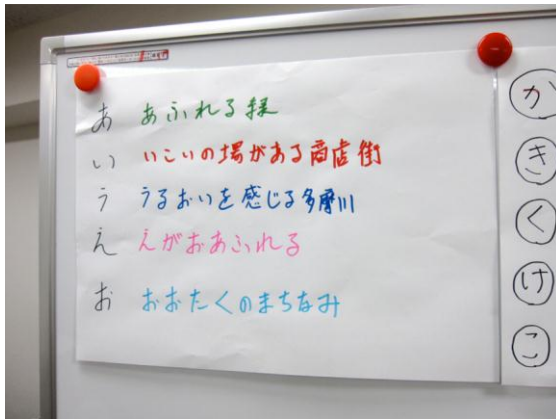 あ あふれる緑
い いこいの場がある商店街
う うるおいを感じる多摩川
え えがおあふれる
お おおたくのまちなみ
か
き
く
け
こ